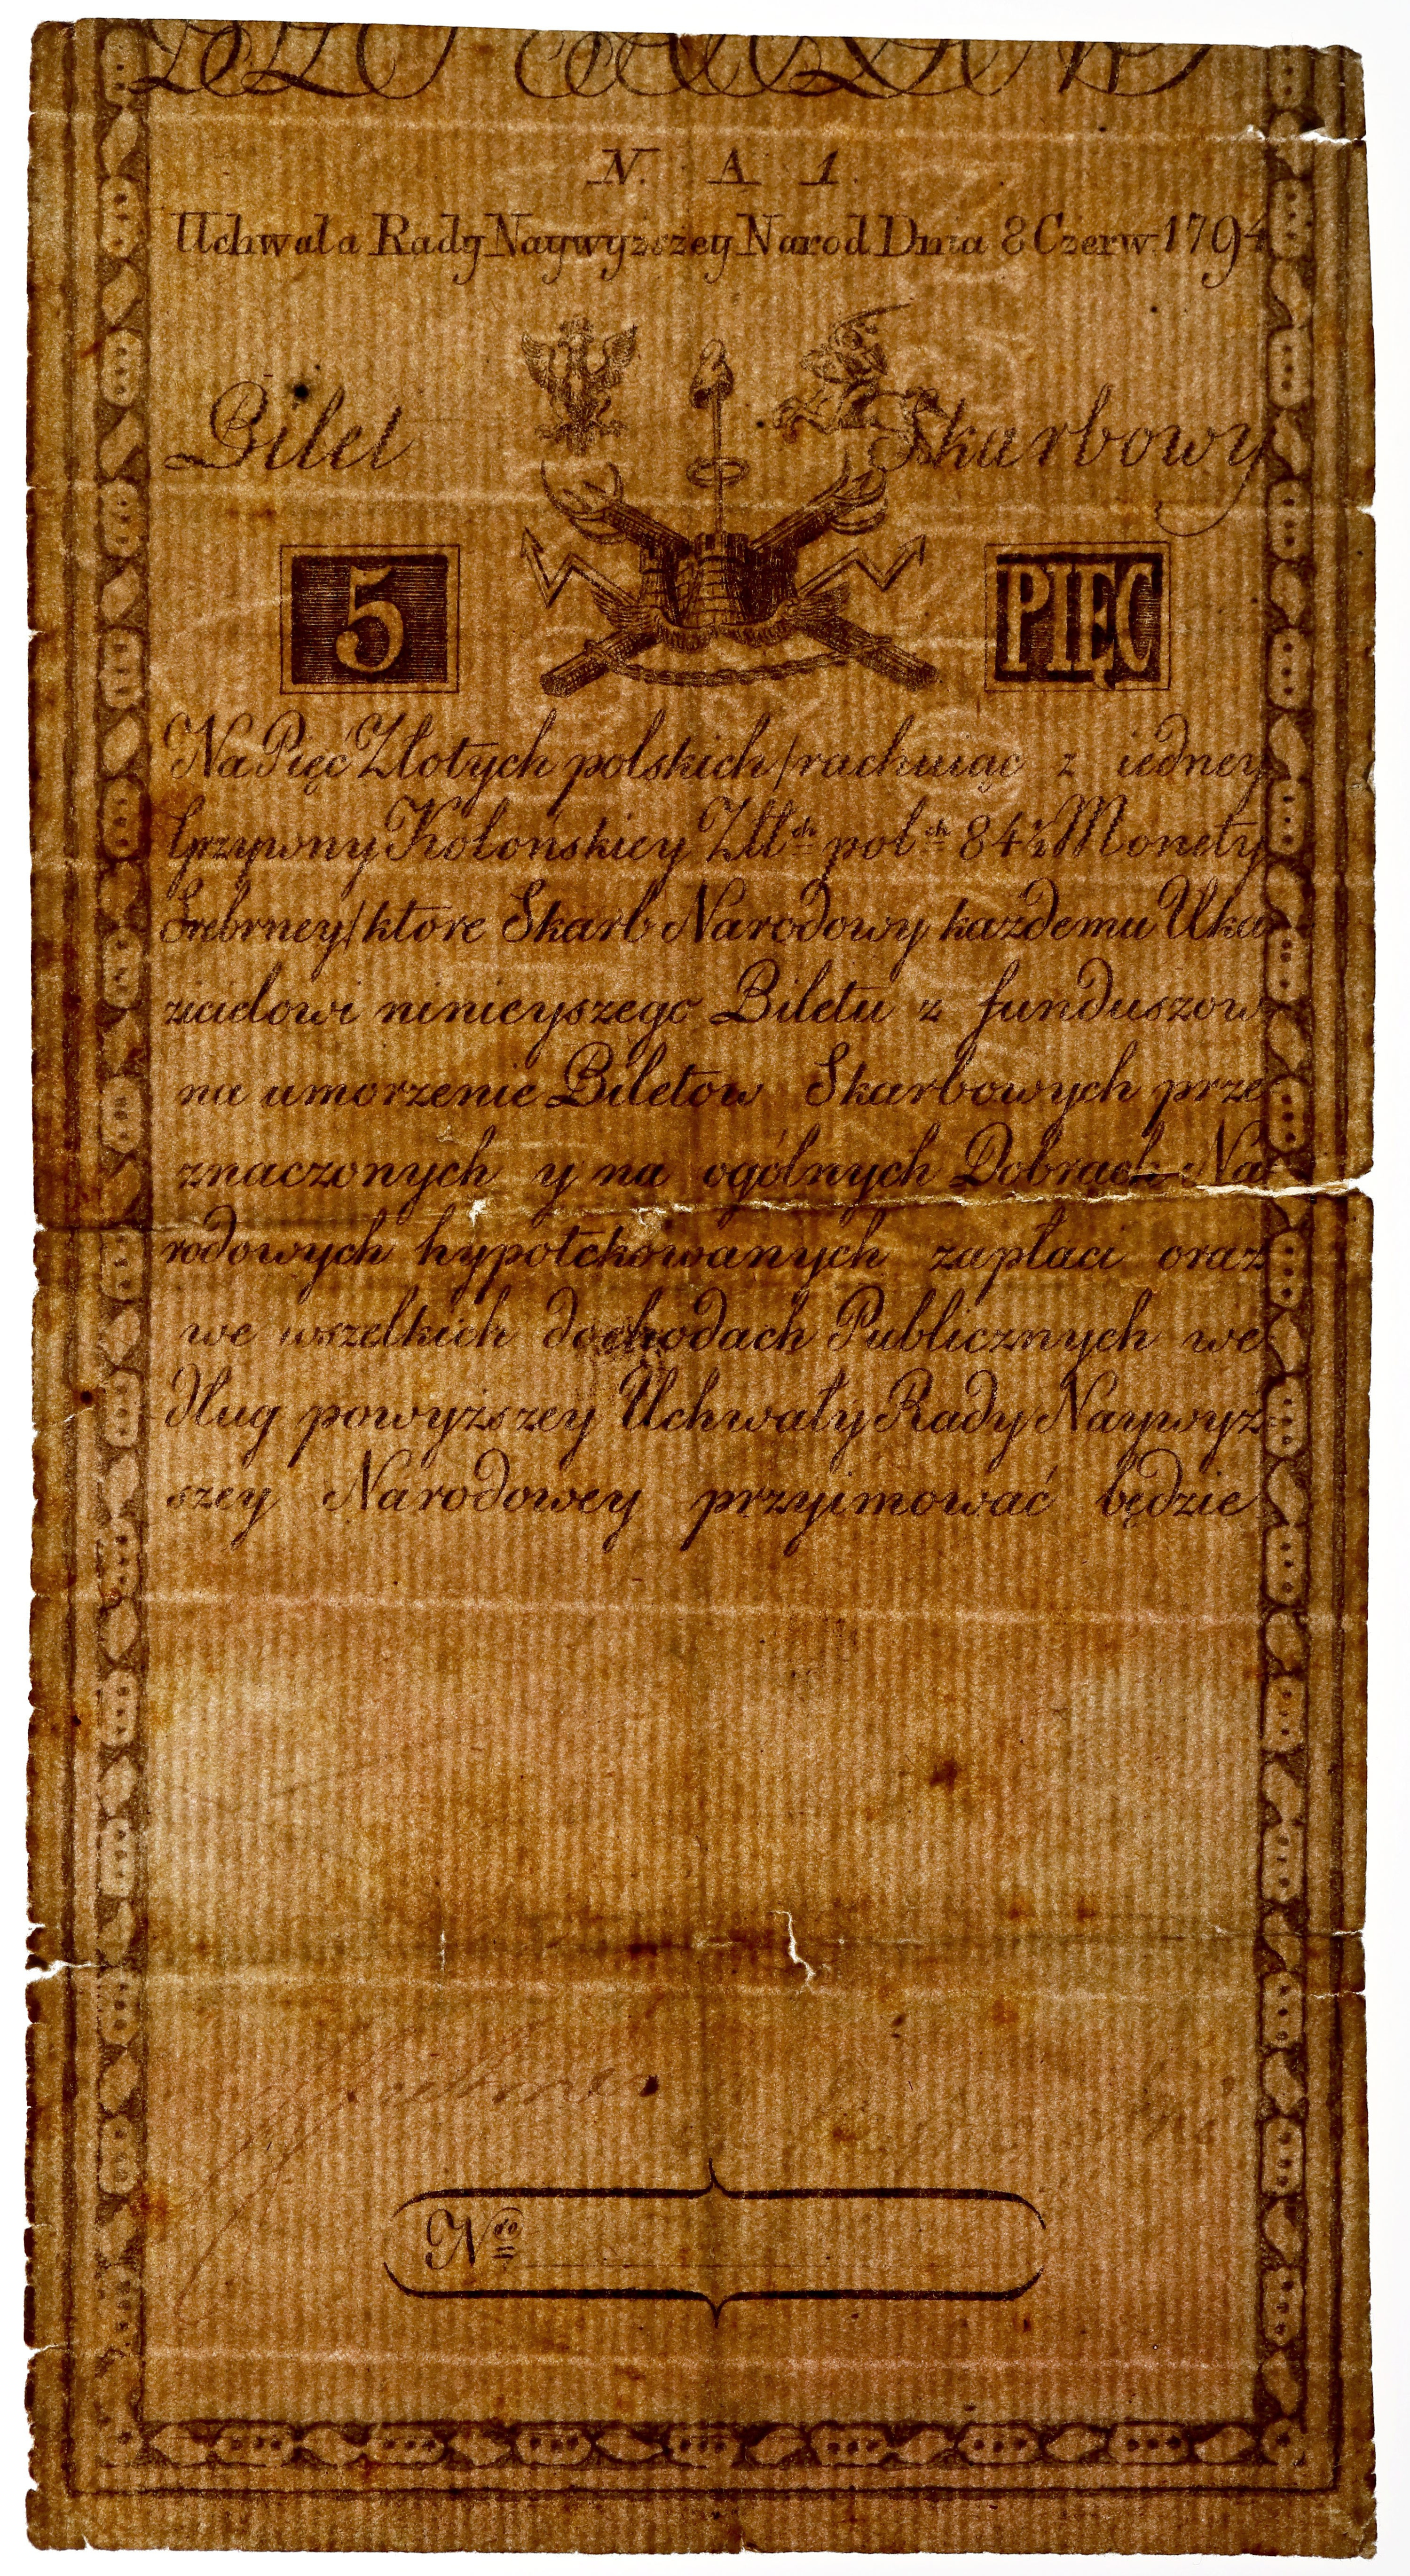 N. A 1.
Uchwała Rady Naywyższey Narod Dnia 8 Czerw. 1794
Bilet Skarbowy
5 PIĘĆ
Na Pięć Złotych polskich / rachuiąc z iedney
Grzywny Kolonskiey Złłch polch 84½ Monety
Srebrney / ktore Skarb Narodowy każdemu Uka
zicielowi ninieyszego Biletu z funduszow
na umorzenie Biletow Skarbowych prze
znaczonych y na ogólnych Dobrach Na
rodowych hypotekowanych zapłaci oraz
we wszelkich dochodach Publicznych we
dług powyższey Uchwały Rady Naywyż
szey Narodowey przyimować będzie
Nro